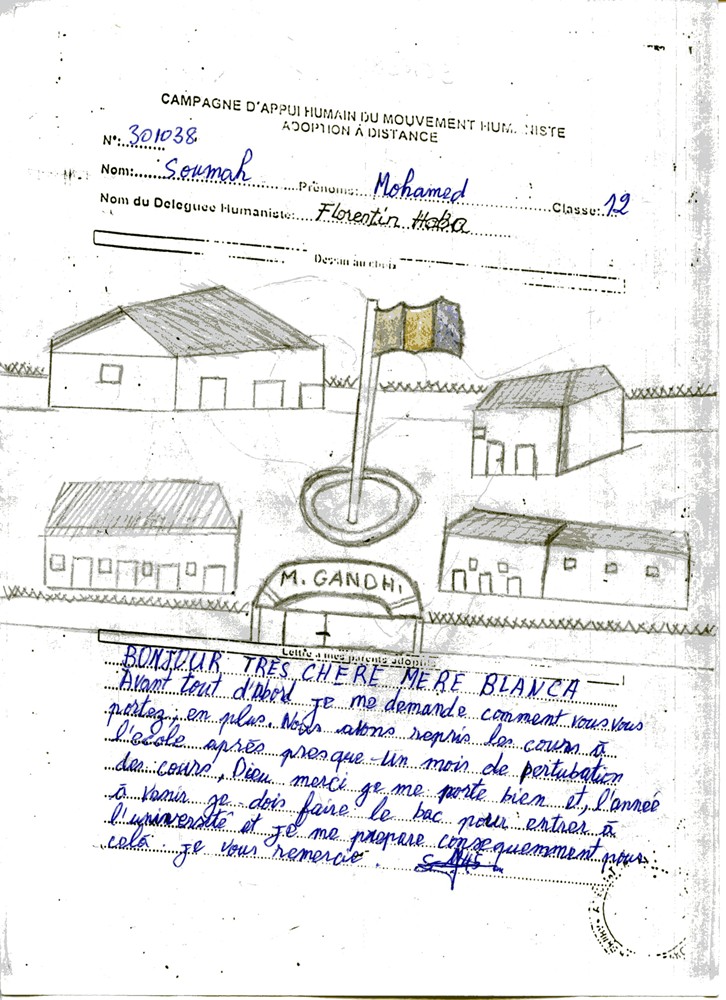 CAMPAGNE D'APPUI HUMAIN DU MOUVEMENT HUM NISTE
ADOPTION À DISTANCE
N°: 301038
Nom: Soumah Prénoms: Mohamed Classe: 12
Nom du Deleguée Humaniste: Florentin HaBa
Dessin au choix
M. GANDHI
Lettre à mes parents adopti
BONJOUR TRES CHERE MERE BLANCA
Avant tout d'abord je me demande comment vous vous
portez; en plus. Nous avons repris les cours à
l'école après presque un mois de pertubation
des cours, Dieu merci je me porte bien et, l'année
à venir je dois faire le bac pour entrer à
l'université et je me prepare consequemment pour
celà. je vous remercie.